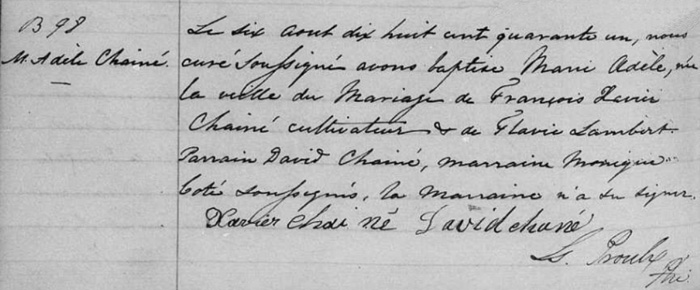 B 98
M. Adèle Chainé.
Le six aout dix huit cent quarante un, nous
curé soussigné avons baptise Marie Adèle, née
la veille du Mariage de François Xavier
Chainé cultivateur & de Flavie Lambert.
Parrain David Chainé, marraine Monique
Coté soussignés, la Marraine n'a su signer.
Xavier Chai né David chané
Ls. Proulx
Ptre